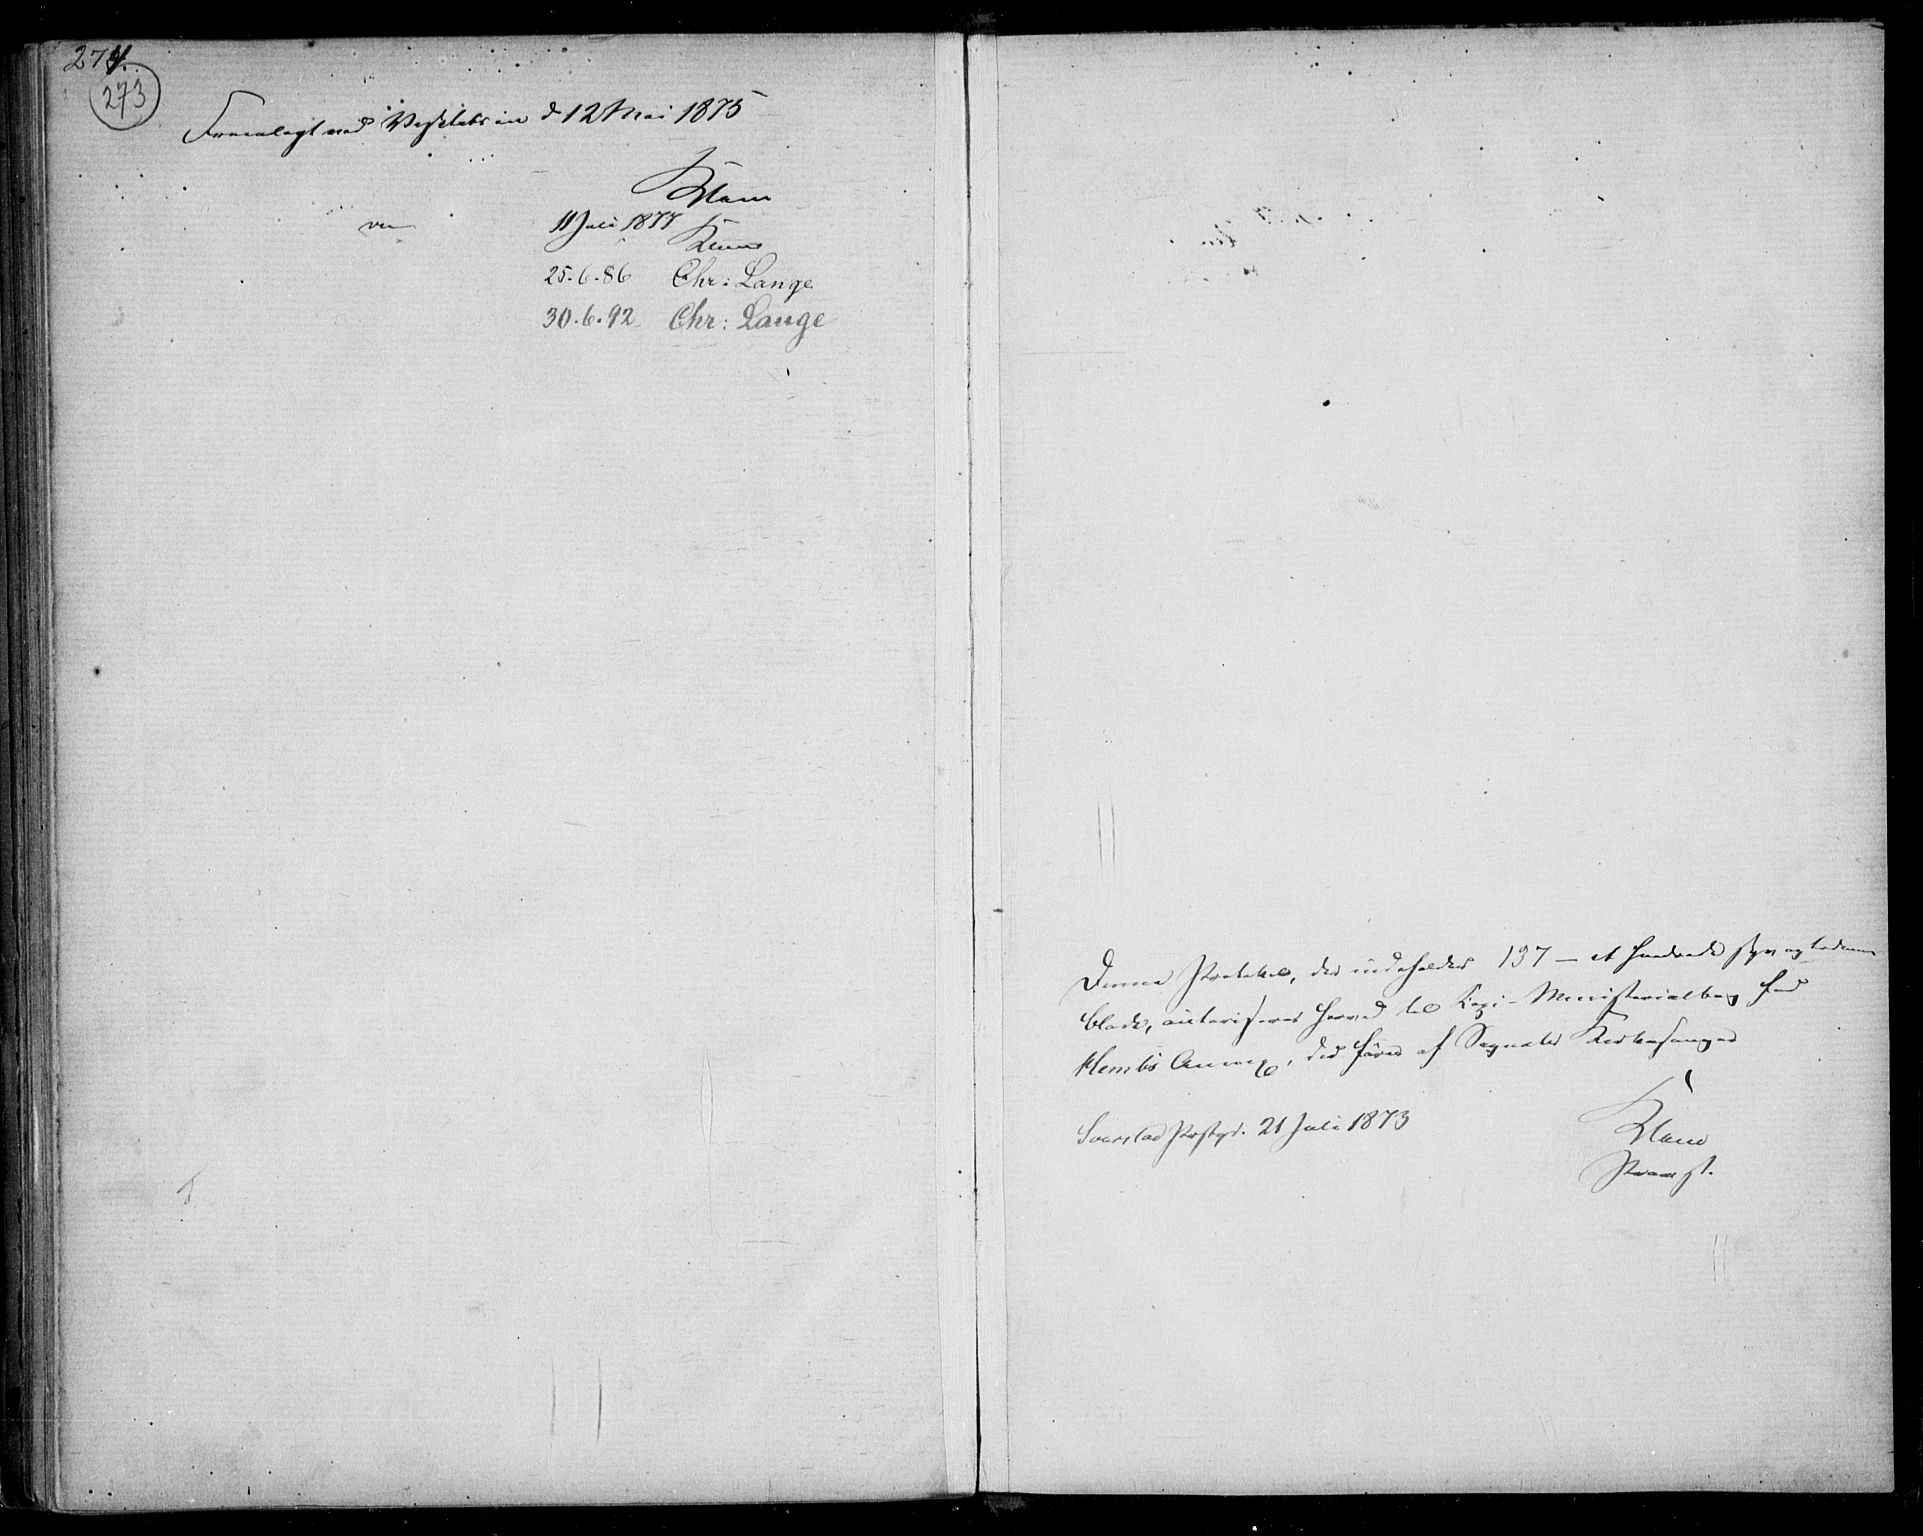 274.
273
Fremlagt ved Visitatsen d 12 Mai 1875
Klem
11 Juli 1877
Klem
25.6.86 Chr: Lange
30.6.92 Chr: Lange
Denne Protokol, der indeholder 137 – et hundrede syv og tredive
blade, autoriseres herved til Kopi-Ministerialbog for
Hems Annex, der föres af Sognets Kirkesanger
Svarstad Prstgd. 21 Juli 1873
Klem